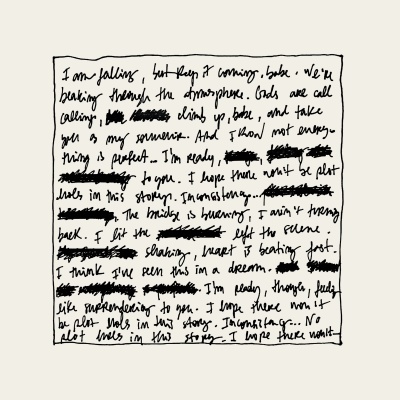 I am falling, but keep it coming, babe. We're
beating through the atmosphere. Gods are call
calling, climb up, babe, and take
you as my souvenir. And I know not every-
thing is perfect... I'm ready,
to you. I hope there won't be plot
holes in this story. Inconsistency...
The bridge is burning, I ain't turning
back. I lit the left the scene.
shaking, heart is beating fast.
I think I've seen this in a dream.
I'm ready, though, feels
like surrendering to you. I hope there won't
be plot holes in this story. Inconsistency... No
plot holes in this story. I hope there won't